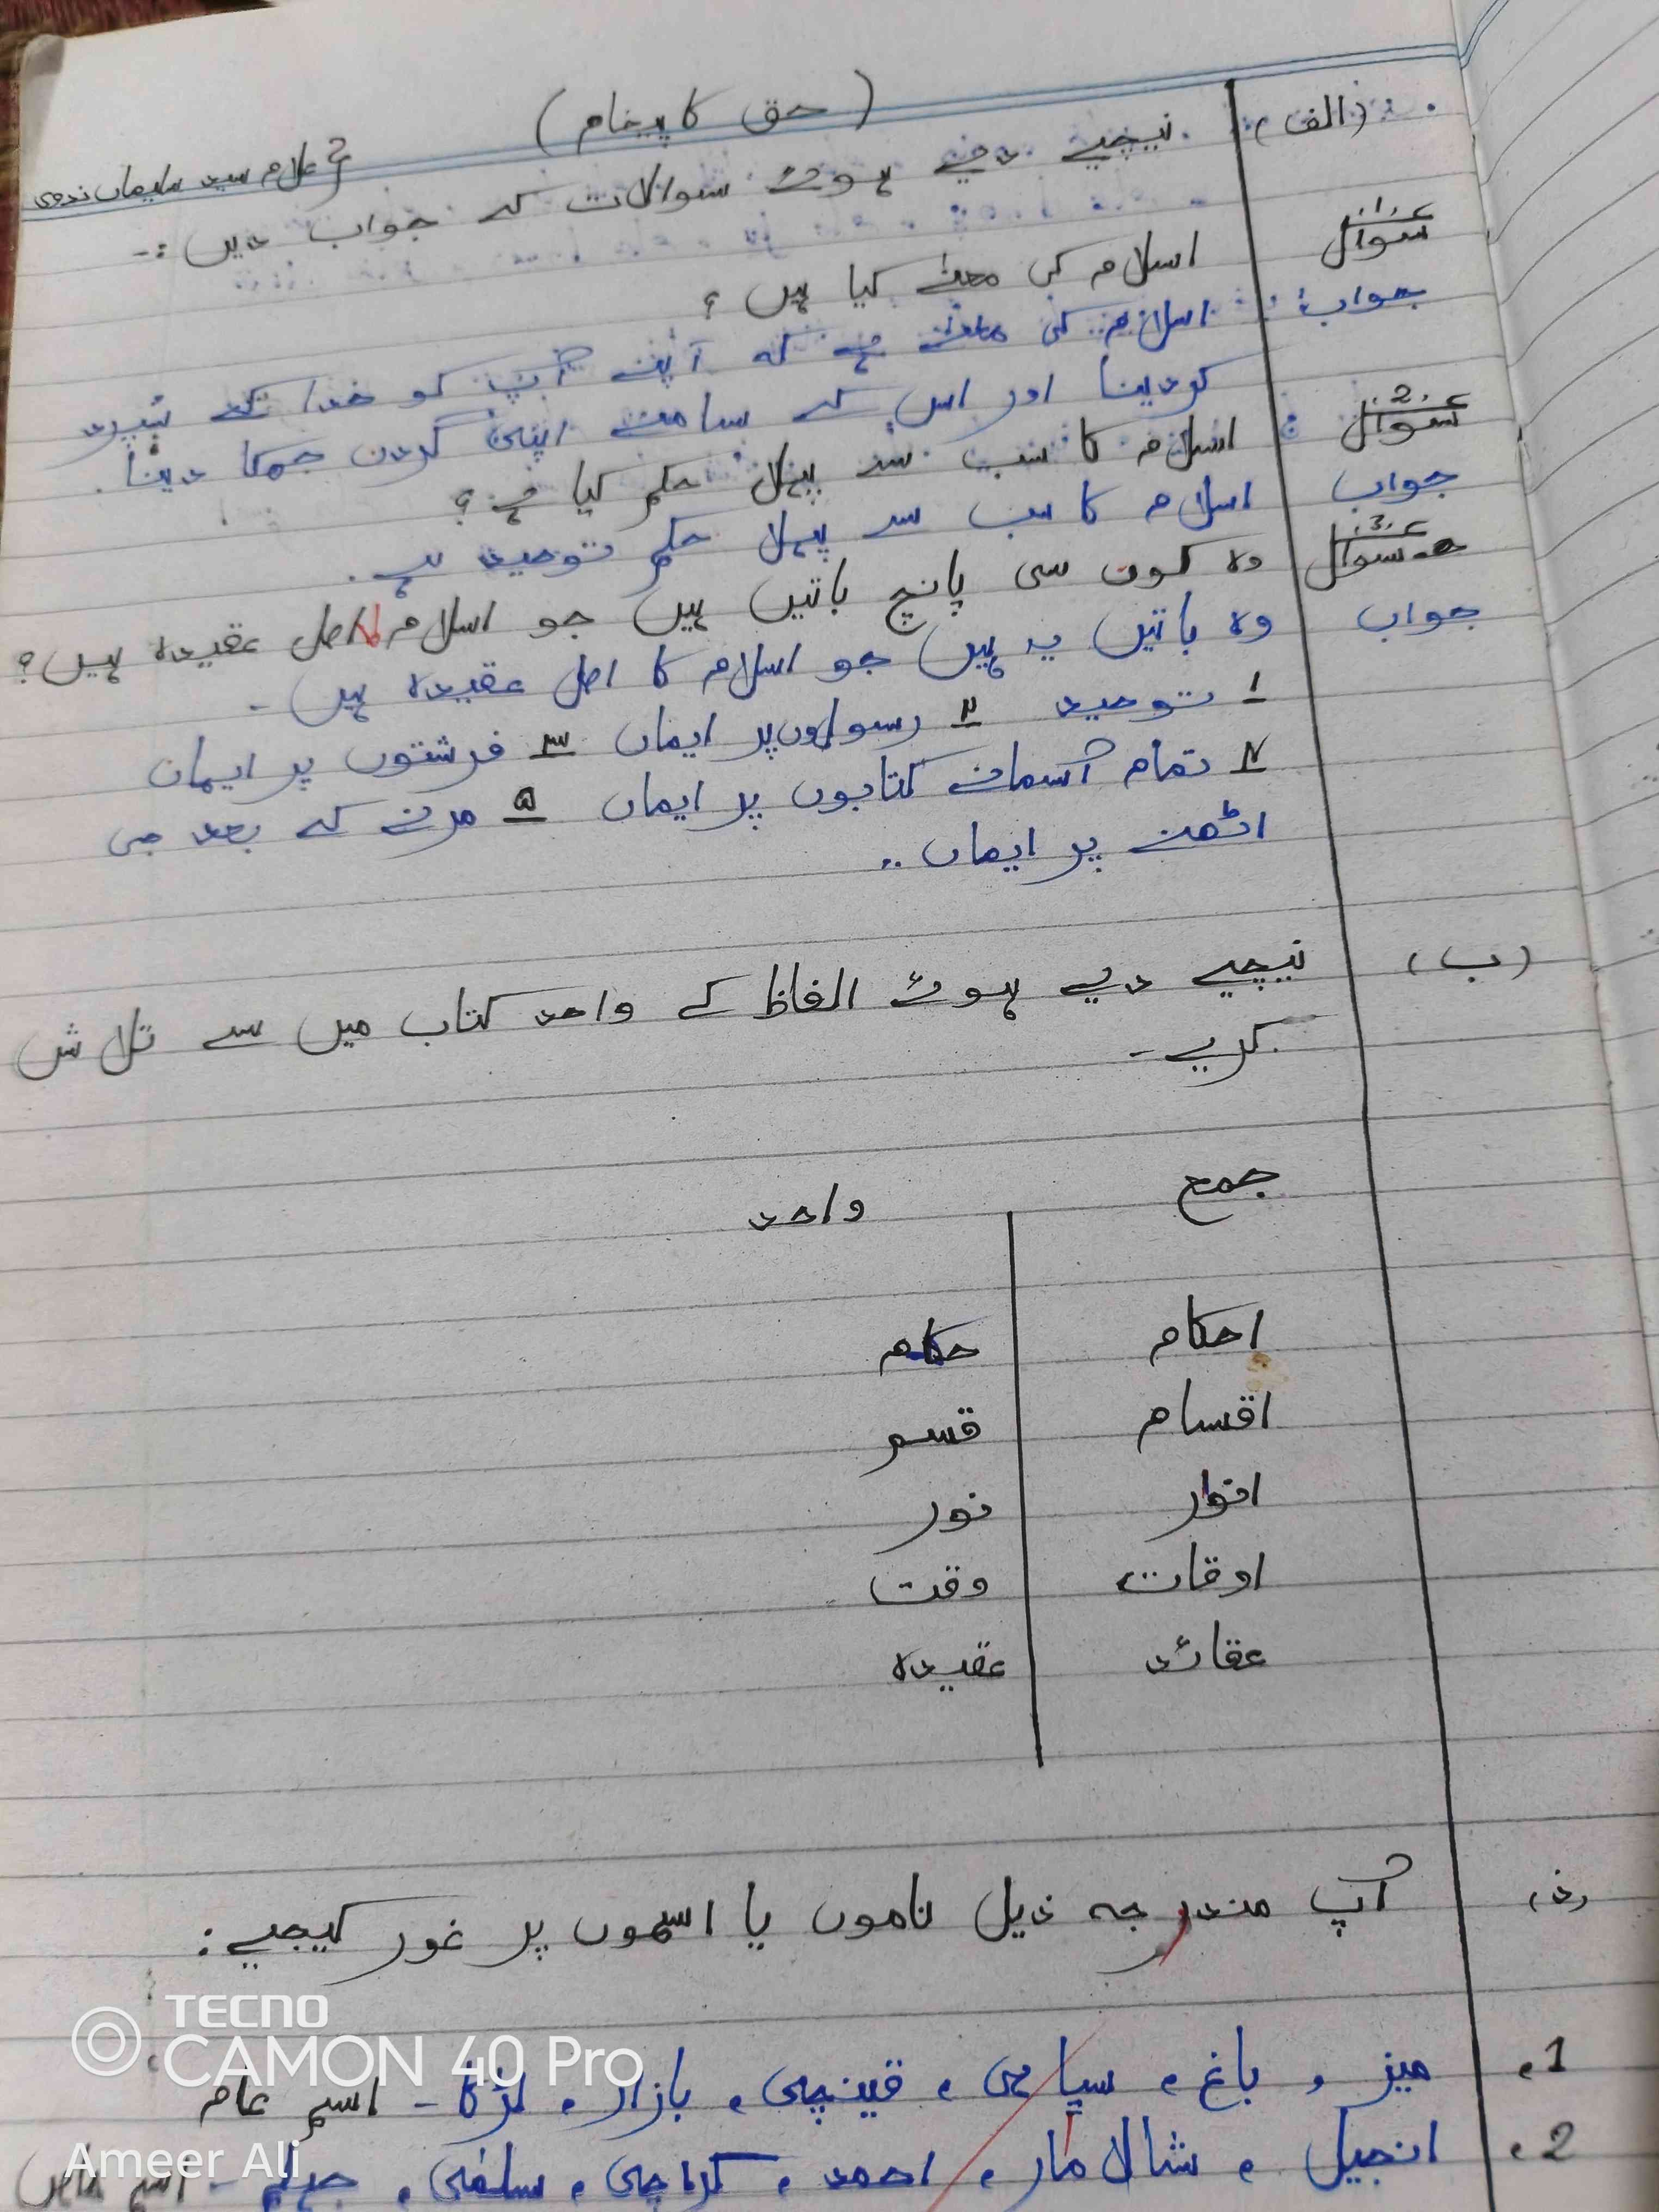 (حق کا پیغام)
علامہ سید سلیمان ندوی
(الف) نیچیے دیے ہوئے سوالات کے جواب دیں :-
سوال 1 اسلام کی معنے کیا ہیں ؟
جواب: اسلام کی معنے ہے کہ آپنے آپ کو خدا کے سُپرد
کردینا اور اس کے سامنے اپنی گردن جھکا دینا .
سوال 2 : اسلام کا سب سے پہلا حکم کیا ہے ؟
جواب اسلام کا سب سے پہلا حکم توحید ہے .
سوال 3 وہ کون سی پانچ باتیں ہیں جو اسلام کا اصل عقیدہ ہیں ؟
جواب وہ باتیں یہ ہیں جو اسلام کا اصل عقیدہ ہیں -
۱ توحید ۲ رسولوں پر ایمان ۳ فرشتوں پر ایمان
۴ تمام آسمانے کتابوں پر ایمان ۵ مرنے کے بعد جی
اٹھنے پر ایمان ..
(ب) نیچیے دیے ہوئے الفاظ کے واحد کتاب میں سے تلاش
کریے -
جمع واحد
احکام حکم
اقسام قسم
انوار نور
اوقات وقت
عقائد عقیدہ
آپ مندرجہ ذیل ناموں یا اسموں پر غور کیجیے :
1. میز ، باغ ، سپاہی ، قینچی ، بازار ، لڑکا - اسم عام
2. انجیل ، شالامار ، احمد ، کراچی ، سلمٰی ، جہلم - اسم خاص
TECNO
CAMON 40 Pro
Ameer Ali